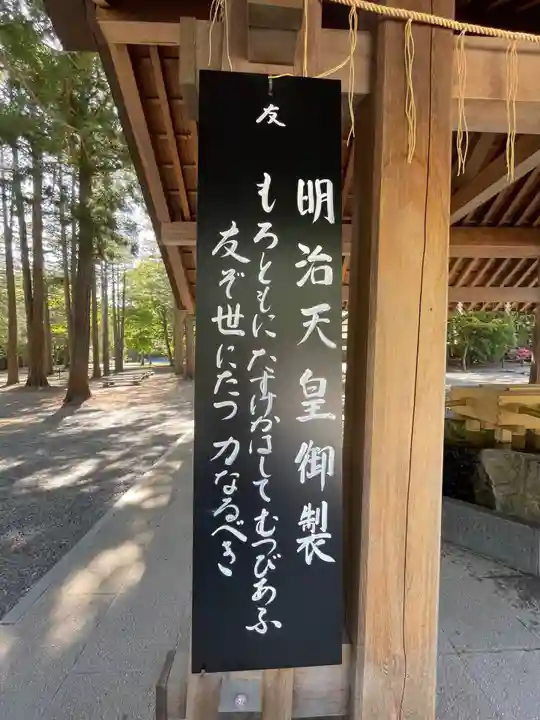 友
明治天皇御製
もろともにたすけかはしてむつびあふ
友ぞ世にたつ力なるべき